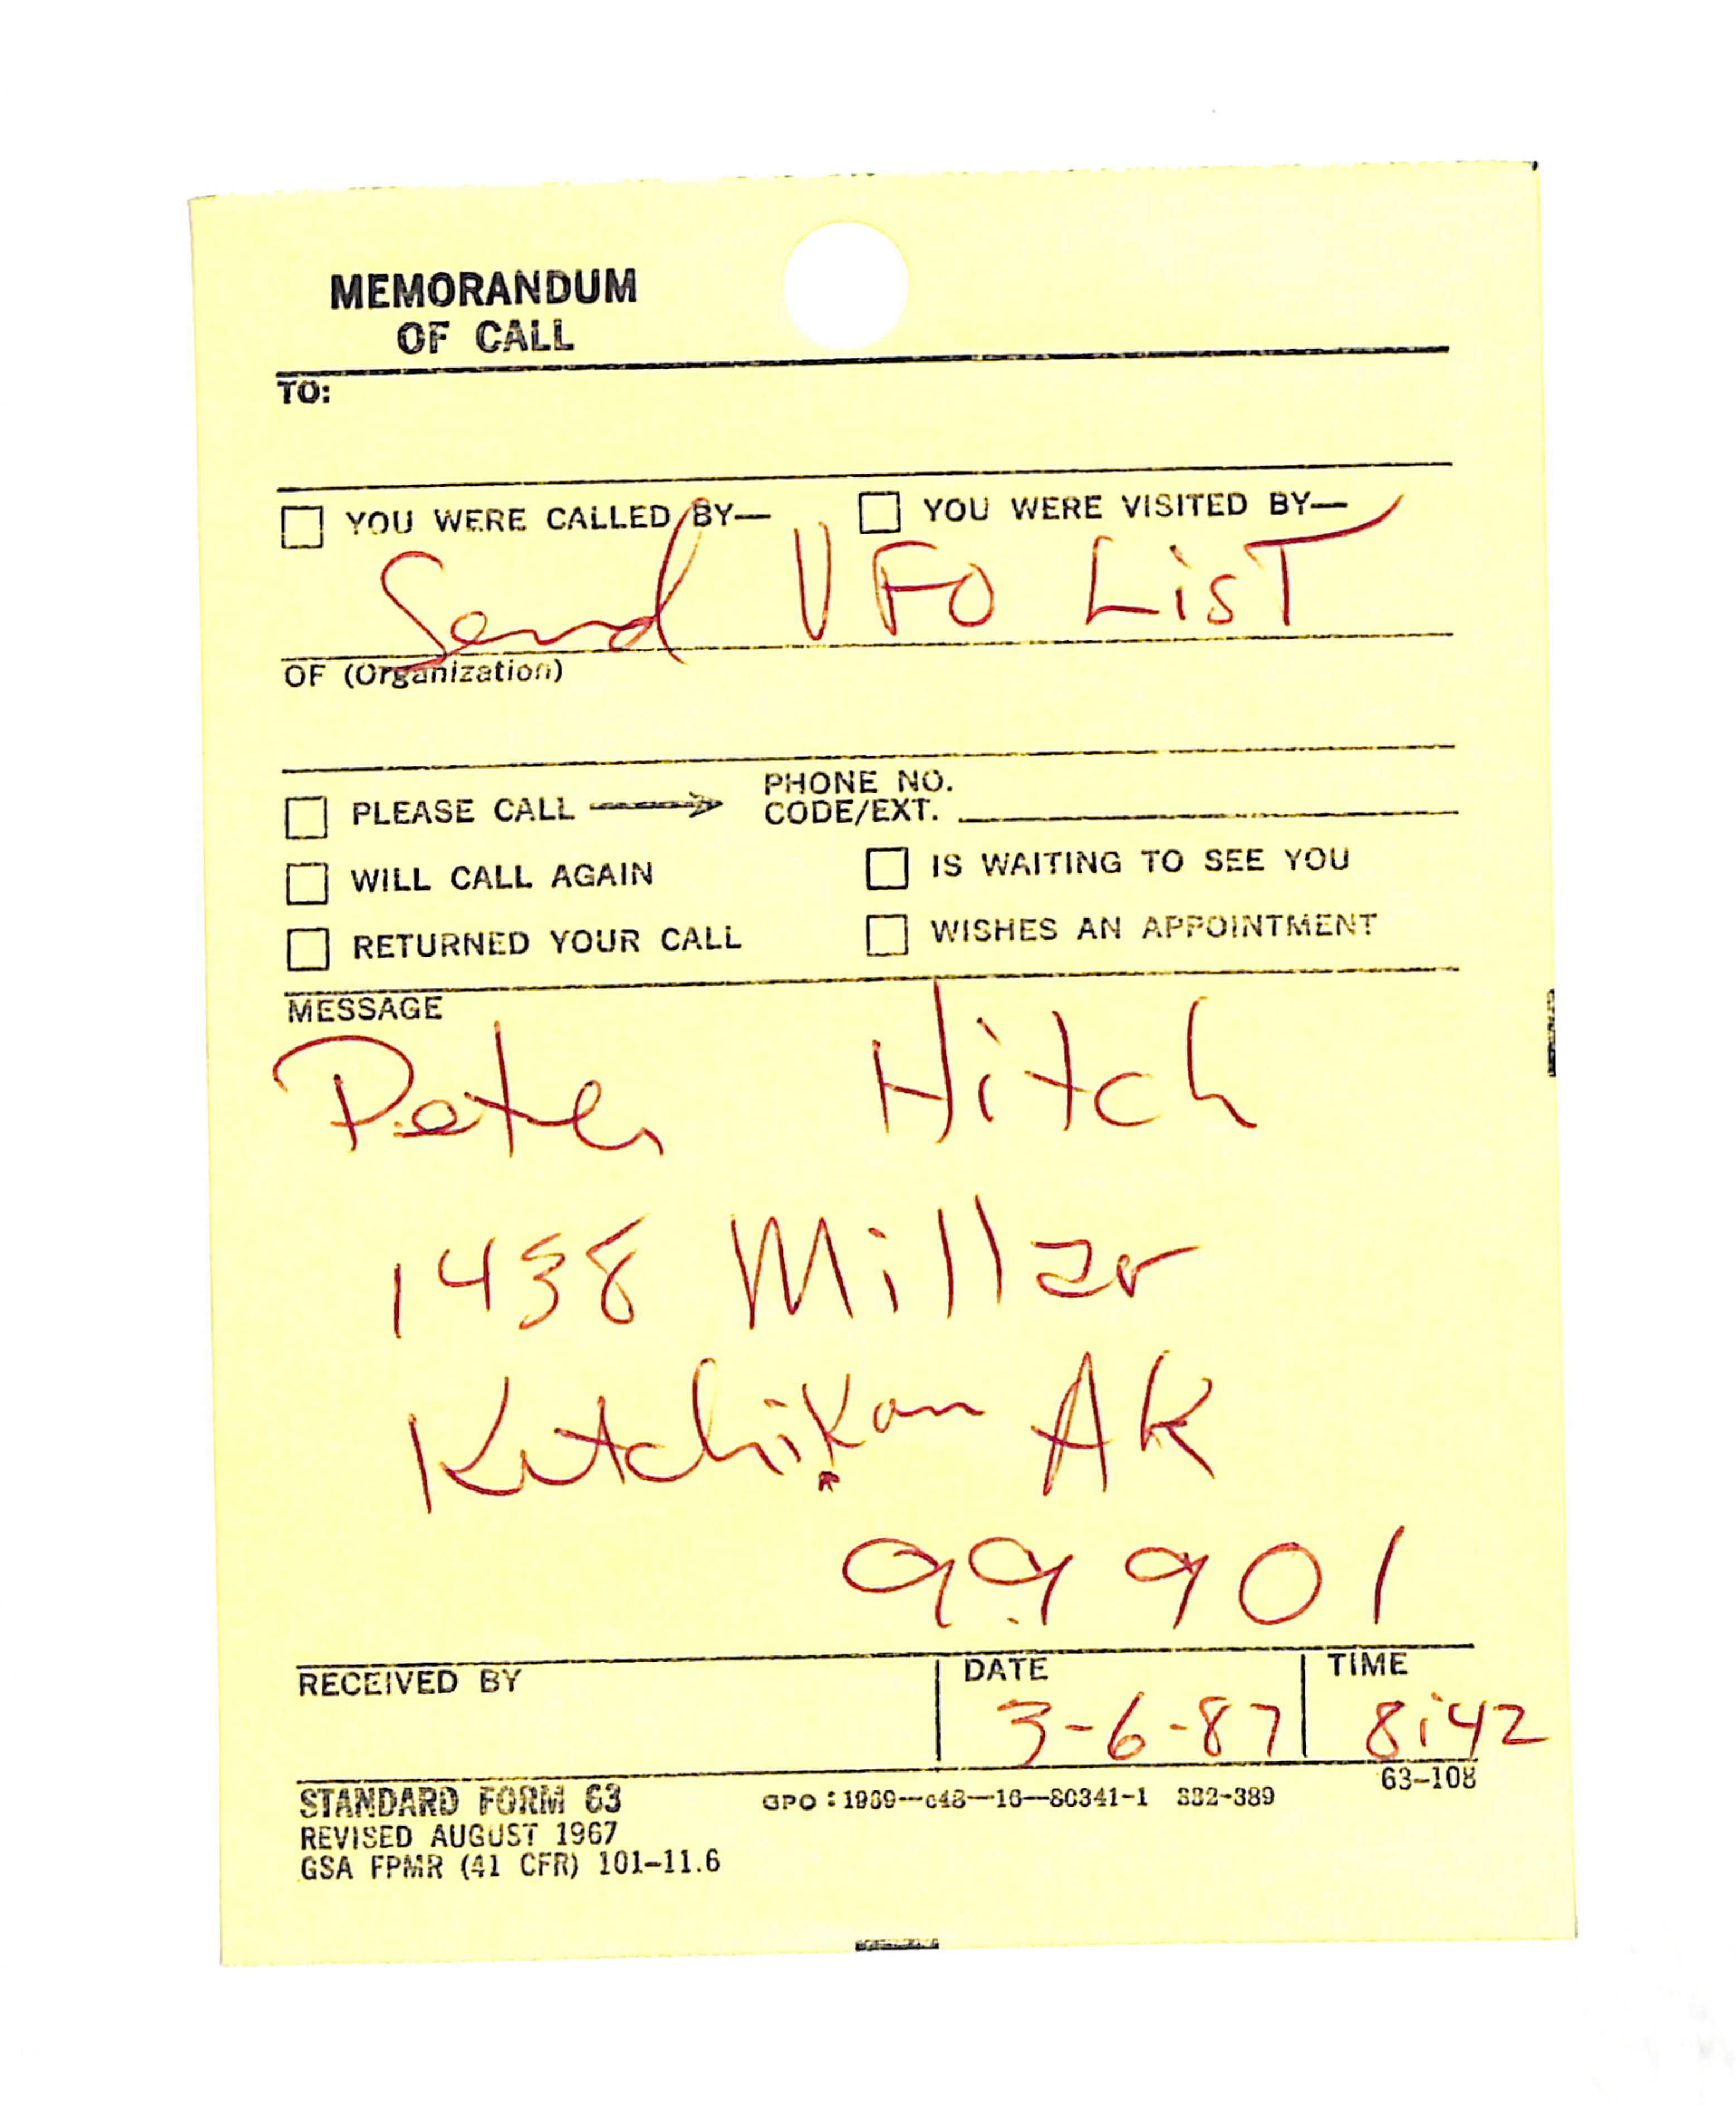 MEMORANDUM
OF CALL
TO:
☐ YOU WERE CALLED BY— ☐ YOU WERE VISITED BY—
Send UFO List
OF (Organization)
☐ PLEASE CALL → PHONE NO.
CODE/EXT.
☐ WILL CALL AGAIN ☐ IS WAITING TO SEE YOU
☐ RETURNED YOUR CALL ☐ WISHES AN APPOINTMENT
MESSAGE
Peter Hitch
1438 Millar
Ketchikan AK
99901
RECEIVED BY DATE TIME
3-6-87 8:42
63-108
STANDARD FORM 63 GPO : 1969—c48—16—80341-1 332-389
REVISED AUGUST 1967
GSA FPMR (41 CFR) 101-11.6